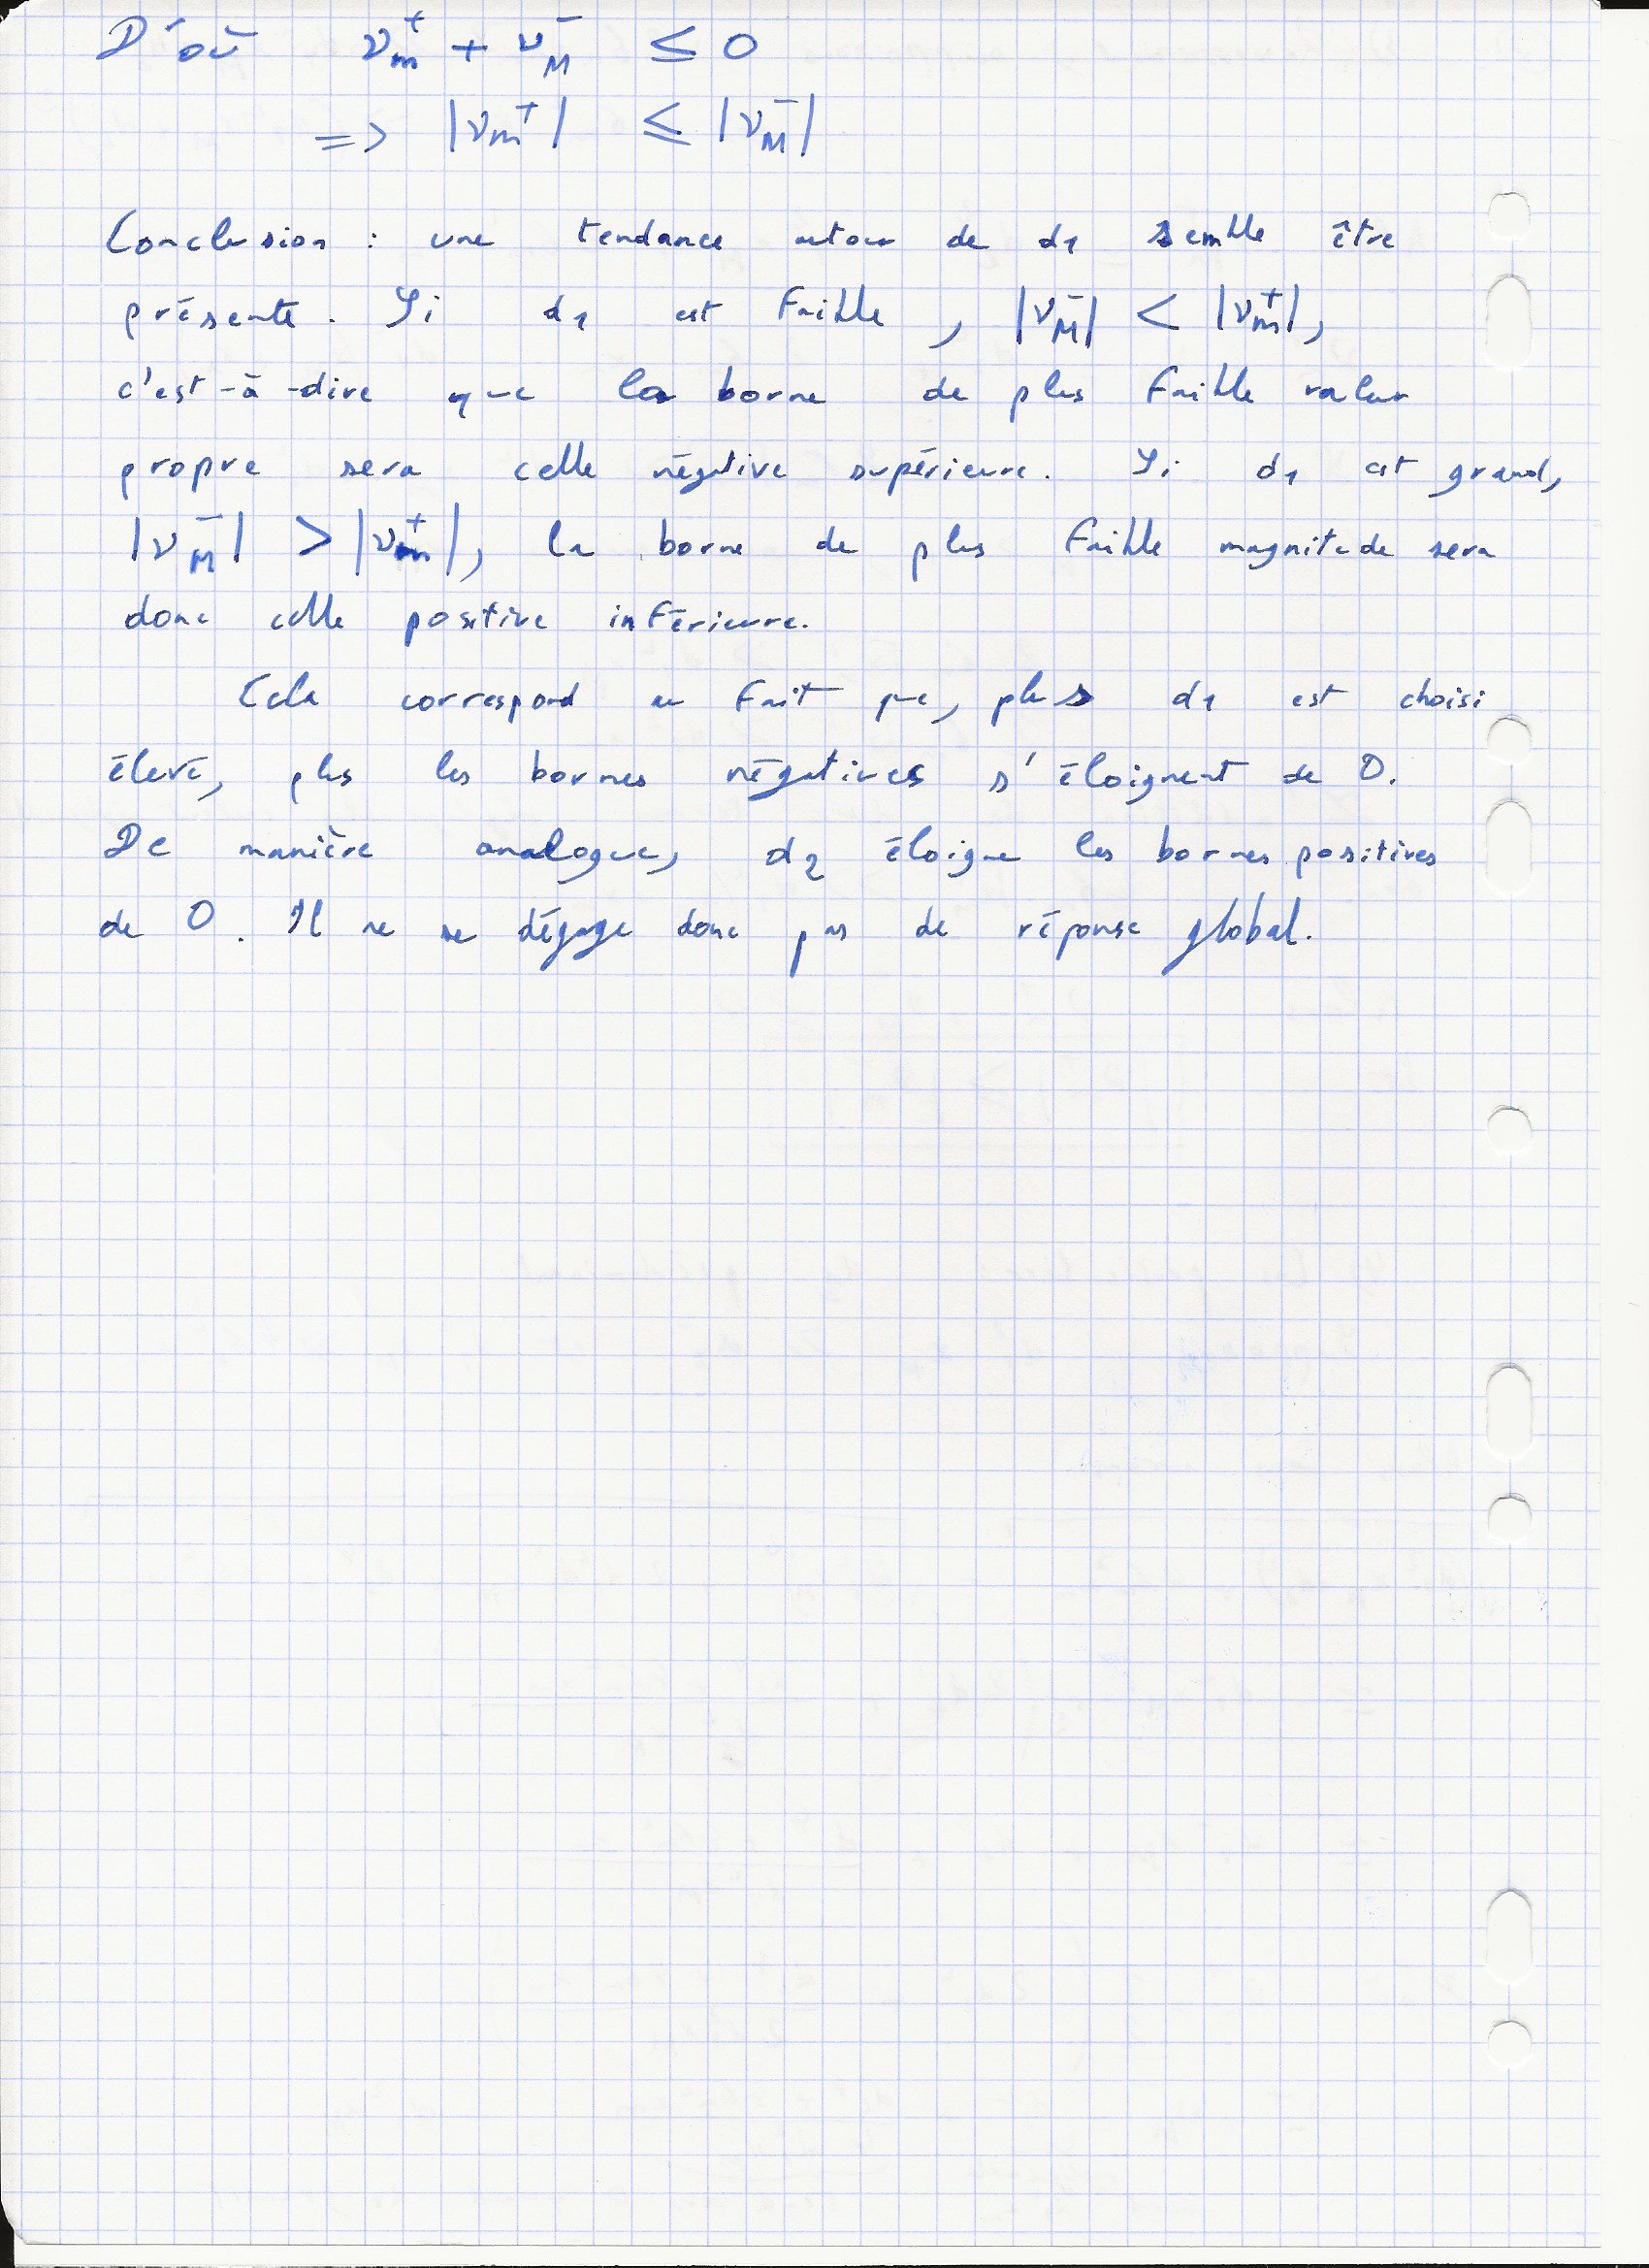 D'où ν_m^+ + ν_M^- ≤ 0
=> |ν_m^+| ≤ |ν_M^-|
Conclusion : une tendance autour de d1 semble être
présente. Si d1 est faible, |ν_M^-| < |ν_m^+|,
c'est-à-dire que la borne de plus faible valeur
propre sera celle négative supérieure. Si d1 est grand,
|ν_M^-| > |ν_m^+|, la borne de plus faible magnitude sera
donc celle positive inférieure.
Cela correspond au fait que, plus d1 est choisi
élevé, plus les bornes négatives s'éloignent de 0.
De manière analogue, d2 éloigne les bornes positives
de 0. Il ne se dégage donc pas de réponse global.